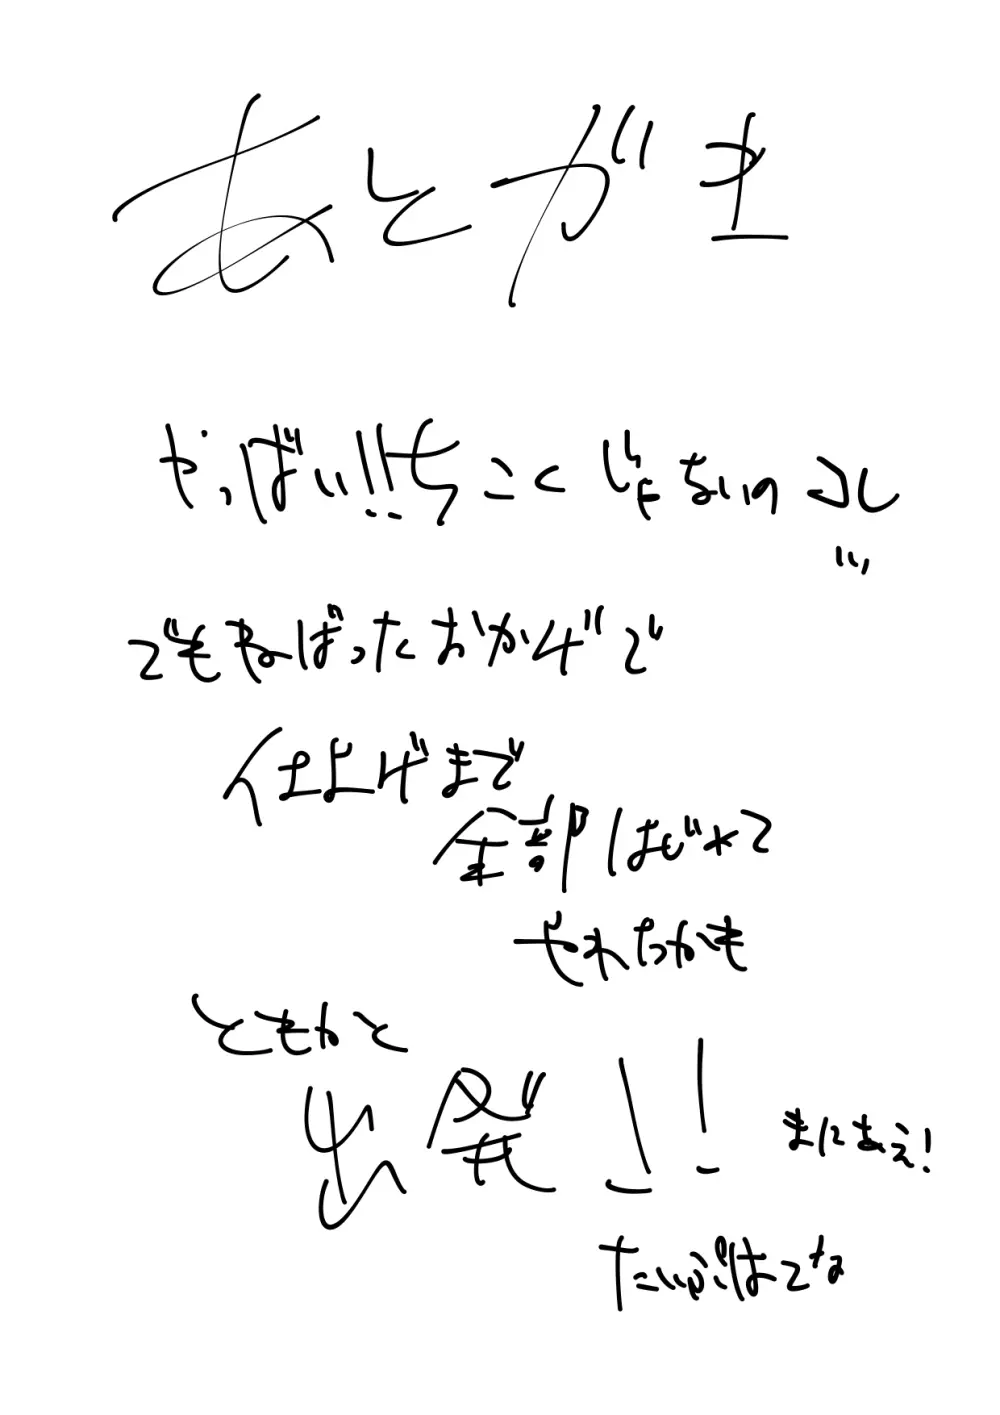 あとがき
やっばい!!ちこくじゃないのコレ
でもねばったおかげで
仕上げまで
全部はじめて
やれたかも
ともかく
出発!!
まにあえ!
たいぶはてな